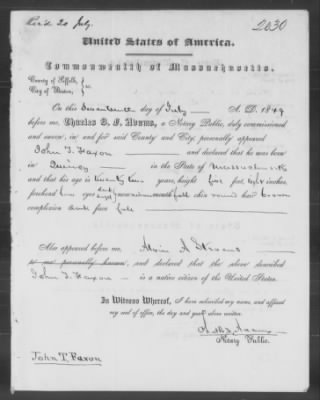 Rec'd 20 July.
2030
United States of America.
Commonwealth of Massachusetts.
County of Suffolk, }
City of Boston, } ss.
On this Seventeenth day of July A. D. 1849
before me, Charles B. F. Adams, a Notary Public, duly commissioned
and sworn, in and for said County and City, personally appeared
John T. Faxon and declared that he was born
in Quincy in the State of Massachusetts
and that his age is twenty two years, height five feet inches,
forehead eyes mouth full chin round hair brown
complexion dark face full
Also appeared before me, A
to me personally known, and declared that the above described
John T. Faxon is a native citizen of the United States.
In Witness Whereof, I have subscribed my name, and affixed
my seal of office, the day and year above written.
Notary Public.
John T. Faxon